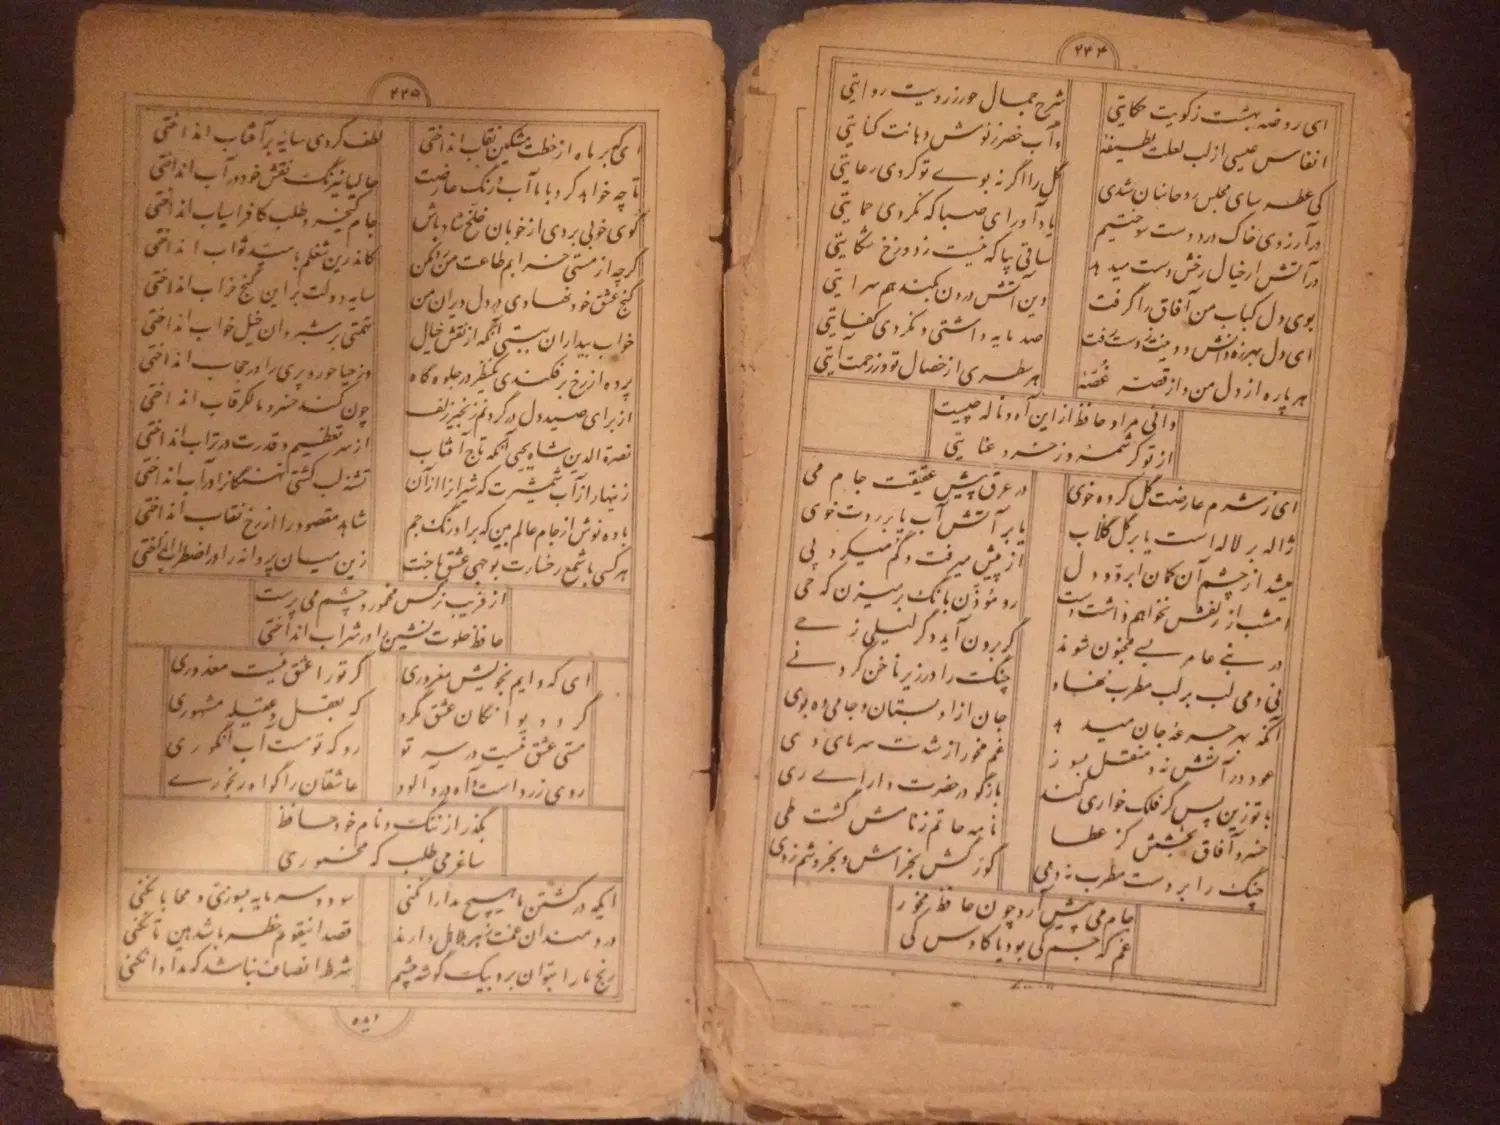 ۲۲۴
ای روضهٔ بهشت ز کویت حکایتی شرح جمال حور ز رویت روایتی
انفاس عیسی از لب لعلت لطیفهٔ و آب خضر ز نوش دهانت کنایتی
کی عطر سای مجلس روحانیان شدی گل را اگر نه بوے تو کردی رعایتی
در آرزوی خاک در دوست سوختیم یاد آور ای صبا که نکردی حمایتی
در آتش ار خیال رخش دست میدهد ساقی بیا که نیست ز دوزخ شکایتی
بوی دل کباب من آفاق را گرفت وین آتش درون بکند هم سرایتی
ای دل بهرزه دانش و دینت ز دست رفت صد مایه داشتی و نکردی کفایتی
هر پاره از دل من و از قصه غُصّهٔ هر سطری از خصال تو وز رحمت آیتی
دانی مراد حافظ ازین آه و ناله چیست
از تو کرشمهٔ و ز خسرو عنایتی
ای ز شرم عارضت گل کرده خوی در عرق پیش عقیقت جام می
ژاله بر لاله است یا بر گل گلاب یا بر آتش آب یا بر روت خوی
میشد از چشم آن کمان ابرو و دل از پیش میرفت و گم میکرد پی
امشب از زلفش نخواهم داشت دست رو مؤذّن بانگ بر میزن که حی
در بنے عامر بے مجنون شوند گر برون آید دگر لیلی ز حے
نی دمی لب بر لب مطرب نهاد چنگ را در زیر ناخن کرد نے
آنکه بهر جرعهٔ جان میدهد جان ازو بستان و جامی ده بوی
عود در آتش نه و منقل بسوز غم مخور از شدت سرمای دی
با تو زین پس گر فلک خواری کند بازگو در حضرت داراے ری
خسرو آفاق بخشش کز عطا نامهٔ حاتم ز نامش گشت طی
چنگ را بر دست مطرب نه دمی گو رگش بخراش و بخروشم ز وی
جام می پیش آر و چون حافظ مخور
غم که جم کی بود یا کاوس کی
۲۲۵
ای که بر ماه از خطت مشکین نقاب انداختی لطف کردی سایهٔ بر آفتاب انداختی
تا چه خواهد کرد با ما آب و رنگ عارضت حالیا نیرنگ نقش خود در آب انداختی
گوی خوبی بردی از خوبان خلّخ شاد باش جام کیخسرو طلب کافراسیاب انداختی
گرچه از مستی خرابم طاعت من رد مکن کاندرین شغلم بامید ثواب انداختی
گنج عشق خود نهادی در دل ویران من سایه دولت بر این گنج خراب انداختی
خواب بیداران ببستی آنگه از نقش خیال تهمتی بر شبروان خیل خواب انداختی
پرده از رخ برفکندی یک نظر در جلوه گاه وز حیا حور و پری را در حجاب انداختی
از برای صید دل در گردنم زنجیر زلف چون کمند خسرو مالک رقاب انداختی
نصرة الدین شاه یحیی آنکه تاج آفتاب از سر تعظیم و قدرت در تراب انداختی
زینهار از آب شمشیرت که شیران را از آن تشنه لب کشتی نهنگان را در آب انداختی
باده نوش از جام عالم بین که بر اورنگ جم شاهد مقصود را از رخ نقاب انداختی
هر کسی با شمع رخسارت بوجهی عشق باخت زین میان پروانه را در اضطراب انداختی
از فریب نرگس مخمور و چشم می پرست
حافظ خلوت نشین را در شراب انداختی
ای که دایم بخویش مغروری گر تو را عشق نیست معذوری
گرد دیوانگان عشق مگرد که بعقل و عقیله مشهوری
مستی عشق نیست در سر تو رو که تو مست آب انگوری
روی زرد است و آه درد آلود عاشقان را گواه رنجورے
بگذر از ننگ و نام خود حافظ
ساغر می طلب که مخموری
ایکه در کشتن ما هیچ مدارا نکنی سود و سرمایه بسوزی و محابا نکنی
دردمندان غمت زهر هلاهل دارند قصد اینقوم خطر باشد هین تا نکنی
رنج ما را بتوان برد بیک گوشه چشم شرط انصاف نباشد که مداوا نکنی
دیده